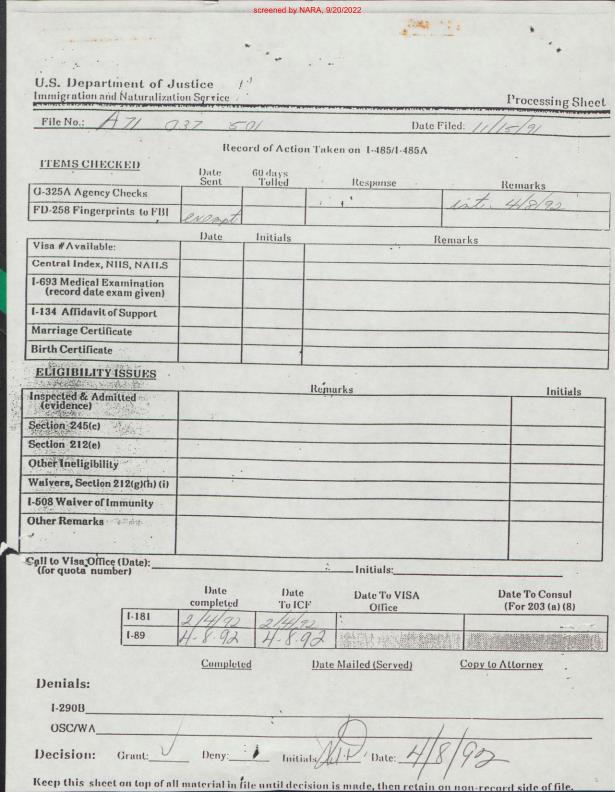 screened by NARA, 9/20/2022
U.S. Department of Justice
Immigration and Naturalization Service
Processing Sheet
File No.: A71 037 501 Date Filed: 11/15/91
Record of Action Taken on I-485/I-485A
ITEMS CHECKED
Date Sent 60 days Tolled Response Remarks
G-325A Agency Checks int. 4/8/92
FD-258 Fingerprints to FBI exempt
Date Initials Remarks
Visa # Available:
Central Index, NIIS, NAILS
I-693 Medical Examination
(record date exam given)
I-134 Affidavit of Support
Marriage Certificate
Birth Certificate
ELIGIBILITY ISSUES
Remarks Initials
Inspected & Admitted
(evidence)
Section 245(c)
Section 212(e)
Other Ineligibility
Waivers, Section 212(g)(h) (i)
I-508 Waiver of Immunity
Other Remarks
Call to Visa Office (Date): Initials:
(for quota number)
Date completed Date To ICF Date To VISA Office Date To Consul (For 203 (a) (8)
I-181 2/4/92 2/4/92
I-89 4-8-92 4-8-92
Completed Date Mailed (Served) Copy to Attorney
Denials:
I-290B
OSC/WA
Decision: Grant: ✓ Deny: Initials Date: 4/8/92
Keep this sheet on top of all material in file until decision is made, then retain on non-record side of file.